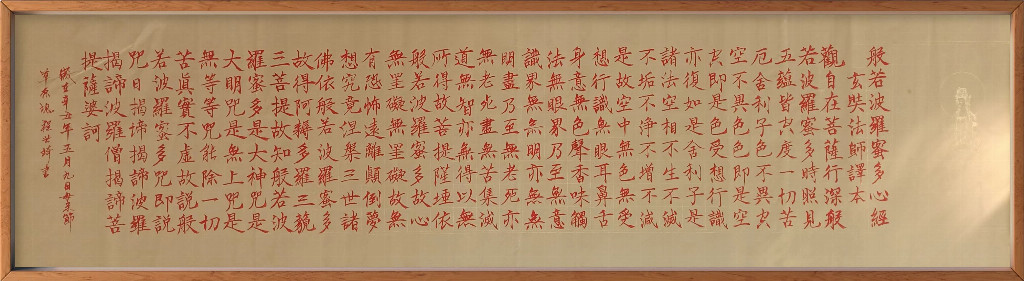 般若波羅蜜多心經
玄奘法師譯本
觀自在菩薩行深般
若波羅蜜多時照見
五蘊皆空度一切苦
厄舍利子色不異空
空不異色色即是空
空即是色受想行識
亦復如是舍利子是
諸法空相不生不滅
不垢不淨不增不減
是故空中無色無受
想行識無眼耳鼻舌
身意無色聲香味觸
法無眼界乃至無意
識界無無明亦無無
明盡乃至無老死亦
無老死盡無苦集滅
道無智亦無得以無
所得故菩提薩埵依
般若波羅蜜多故心
無罣礙無罣礙故無
有恐怖遠離顛倒夢
想究竟涅槃三世諸
佛依般若波羅蜜多
故得阿耨多羅三藐
三菩提故知般若波
羅蜜多是大神咒是
大明咒是無上咒是
無等等咒能除一切
苦眞實不虛故說般
若波羅蜜多咒即說
咒曰揭諦揭諦波羅
揭諦波羅僧揭諦菩
提薩婆訶
歲在辛丑年五月九日母親節